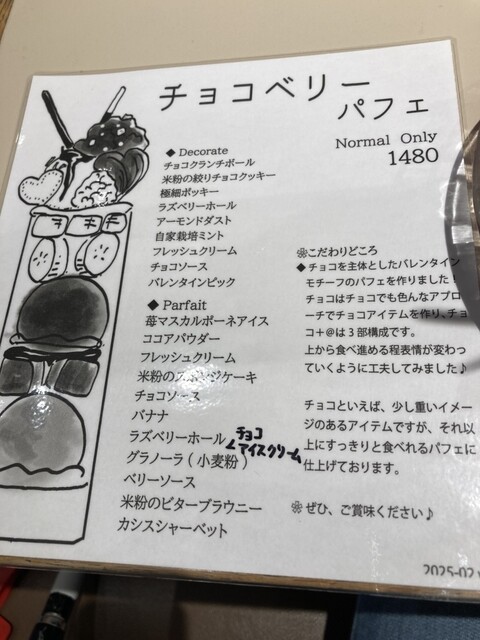 チョコベリー
パフェ
Normal Only
1480
◆ Decorate
チョコクランチボール
米粉の絞りチョコクッキー
極細ポッキー
ラズベリーホール
アーモンドダスト
自家栽培ミント
フレッシュクリーム
チョコソース
バレンタインピック
◆ Parfait
苺マスカルポーネアイス
ココアパウダー
フレッシュクリーム
米粉のスポンジケーキ
チョコソース
バナナ
ラズベリーホール
チョコ
アイスクリーム
グラノーラ ( 小麦粉 )
ベリーソース
米粉のビターブラウニー
カシスシャーベット
❀こだわりどころ
◆ チョコを主体としたバレンタイン
モチーフのパフェを作りました!
チョコはチョコでも色んなアプロ
ーチでチョコアイテムを作り、チョ
コ+@は3部構成です。
上から食べ進める程表情が変わっ
ていくように工夫してみました♪
チョコといえば、少し重いイメー
ジのあるアイテムですが、それ以
上にすっきりと食べれるパフェに
仕上げております。
❀ ぜひ、ご賞味ください♪
2025-02